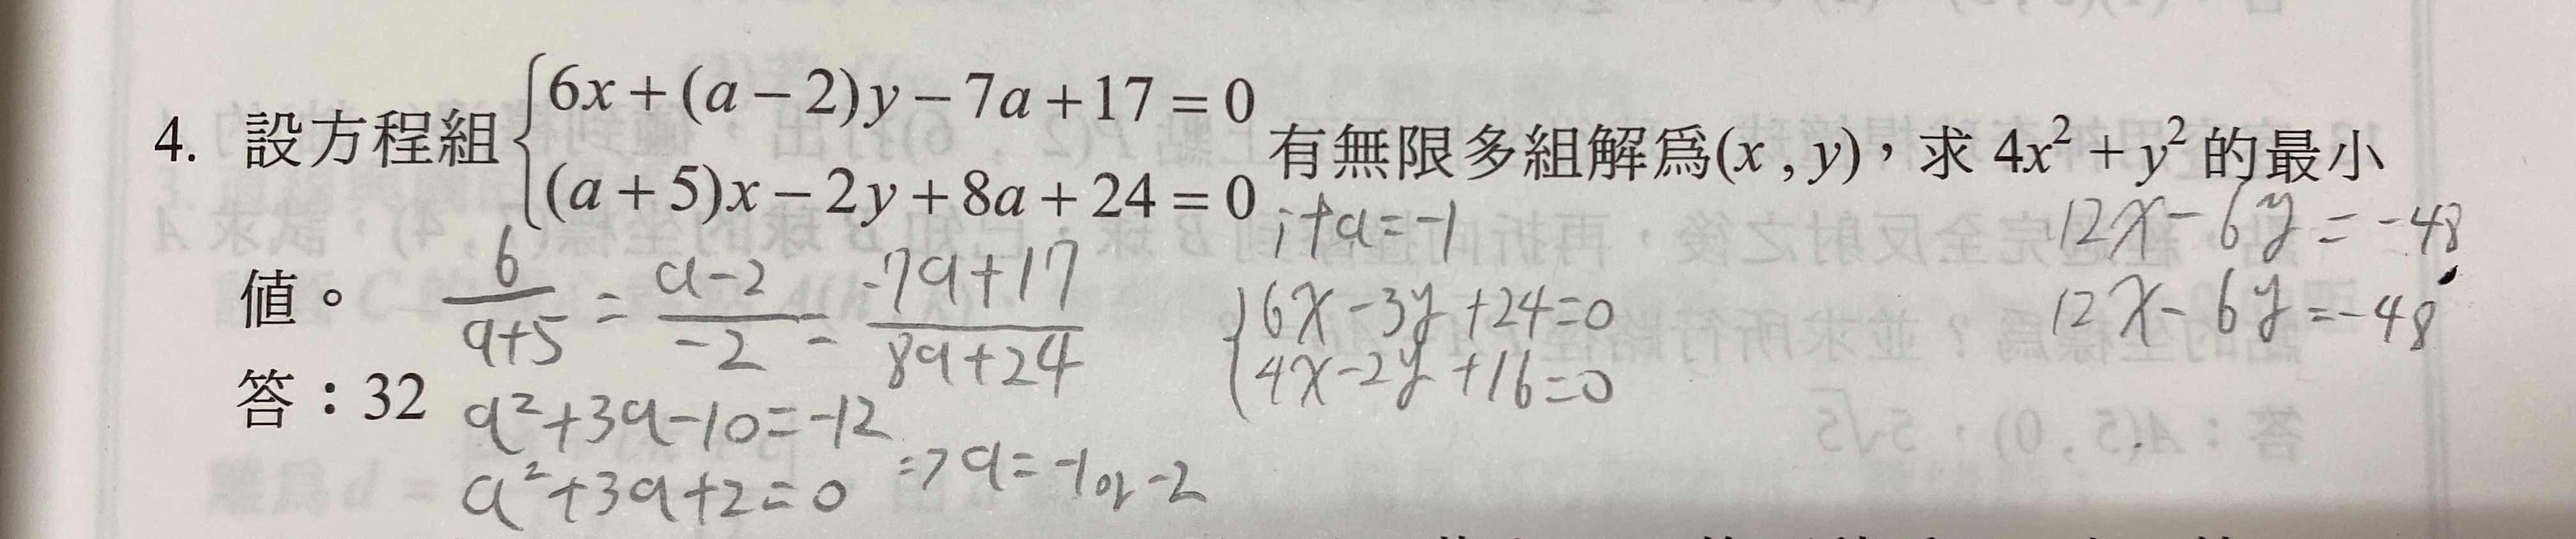 4. 設方程組 { 6x + (a − 2)y − 7a + 17 = 0
(a + 5)x − 2y + 8a + 24 = 0
有無限多組解爲(x , y)，求 4x² + y² 的最小
值。
答：32
6/(a+5) = (a-2)/-2 = (-7a+17)/(8a+24)
a²+3a-10=-12
a²+3a+2=0 => a=-1 or -2
if a=-1
{ 6x-3y+24=0
4x-2y+16=0
12x-6y=-48
12x-6y=-48